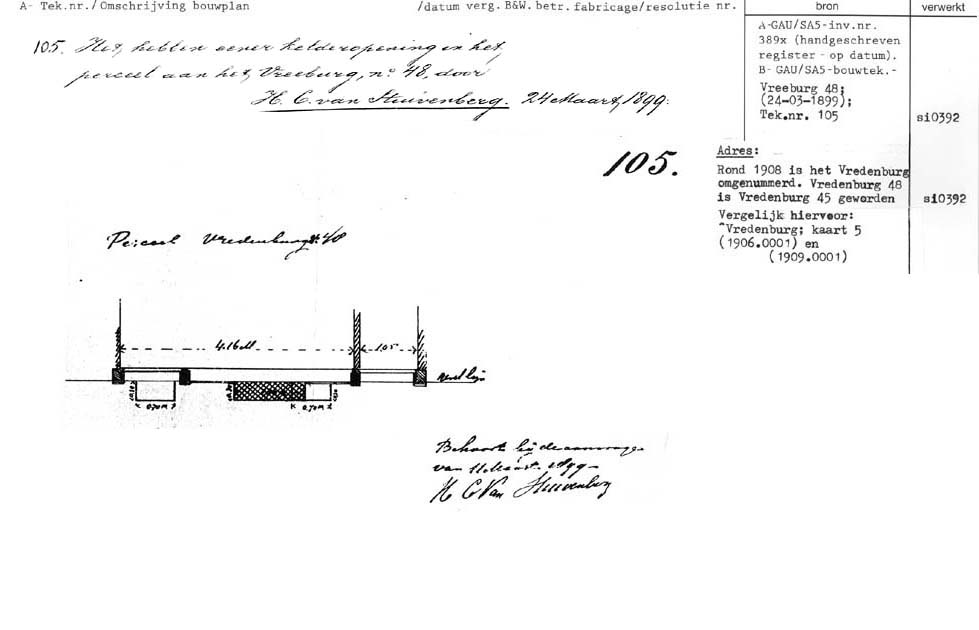 A- Tek.nr./Omschrijving bouwplan /datum verg. B&W. betr. fabricage/resolutie nr. bron verwerkt
105. Het hebben eener kelderopening in het
perceel aan het Vreeburg, no 48, door
H. C. van Stuivenberg. 24 Maart, 1899.
A-GAU/SA5-inv.nr.
389x (handgeschreven
register - op datum).
B- GAU/SA5-bouwtek.-
Vreeburg 48;
(24-03-1899);
Tek.nr. 105
si0392
105.
Adres:
Rond 1908 is het Vredenburg
omgenummerd. Vredenburg 48
is Vredenburg 45 geworden
si0392
Vergelijk hiervoor:
^Vredenburg; kaart 5
(1906.0001) en
(1909.0001)
Perceel Vredenburg 48
4.16 M
1.05
0.70 M
0.70 M
Behoort bij de aanvrage
van
H C Van Stuivenberg